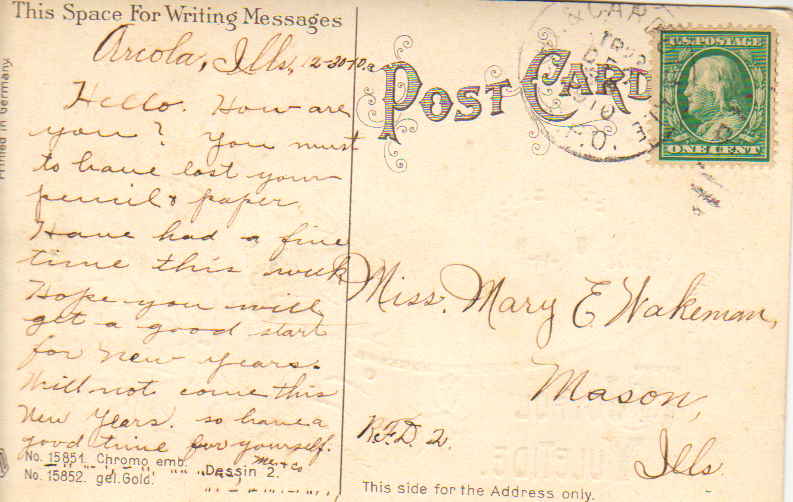 This Space For Writing Messages
Arcola, Ills, 12-30-10.
Hello. How are
you? You must
to have lost your
pencil & paper
Have had a fine
time this week
Hope you will
get a good start
for New Years.
Will not come this
New Years. so have a
good time for yourself.
No. 15851. Chromo emb.
No. 15852. gel. Gold. " " Dessin 2.
Printed in Germany.
POST CARD
U.S. POSTAGE
ONE CENT
Miss. Mary E Wakeman,
Mason,
R.F.D. 2.
Ills.
This side for the Address only.